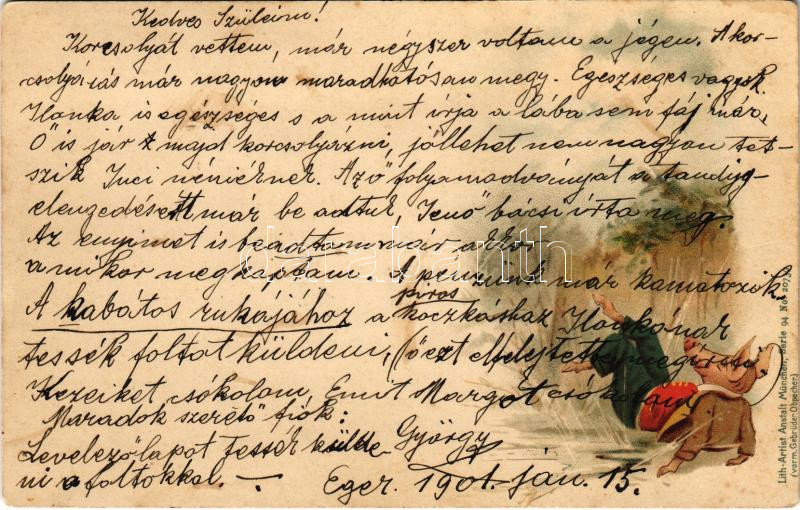 Kedves Szüleim!
Korcsolyát vettem, már négyszer voltam a jégen. A kor-
csolyázás már nagyon maradhatósan megy. Egészséges vagyok.
Ilonka is egészséges s a mint írja a lába sem fáj már,
Ő is jár majd korcsolyázni, jóllehet nem nagyon tet-
szik Juci néniéknek. Az ő folyamadványát a tandíj-
elengedésért már be adtuk, Jenő bácsi írta meg.
Az enyimet is beadtam már akkor
a mikor megkaptam. A pénzünk már kamatozik.
A kabátos ruhájához a piros koczkáshoz Ilonkának
tessék foltot küldeni, (ő ezt elfelejtette megírni
Kezeiket csókolom, Emit Margot csókolom
Maradok szerető fiók:
György
Levelezőlapot tessék külde-
ni a foltokkal. –
Eger. 1901. jan. 15.
Lith.-Artist. Anstalt München, Serie 94 No. 20730
(vorm. Gebrüder Obpacher)
darabanth